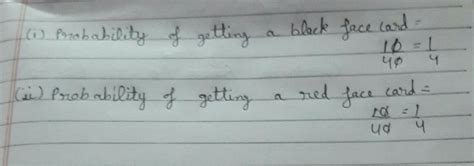 (i) Probability of getting a black face card =
10 = 1
40 4
(ii) Probability of getting a red face card =
10 = 1
40 4